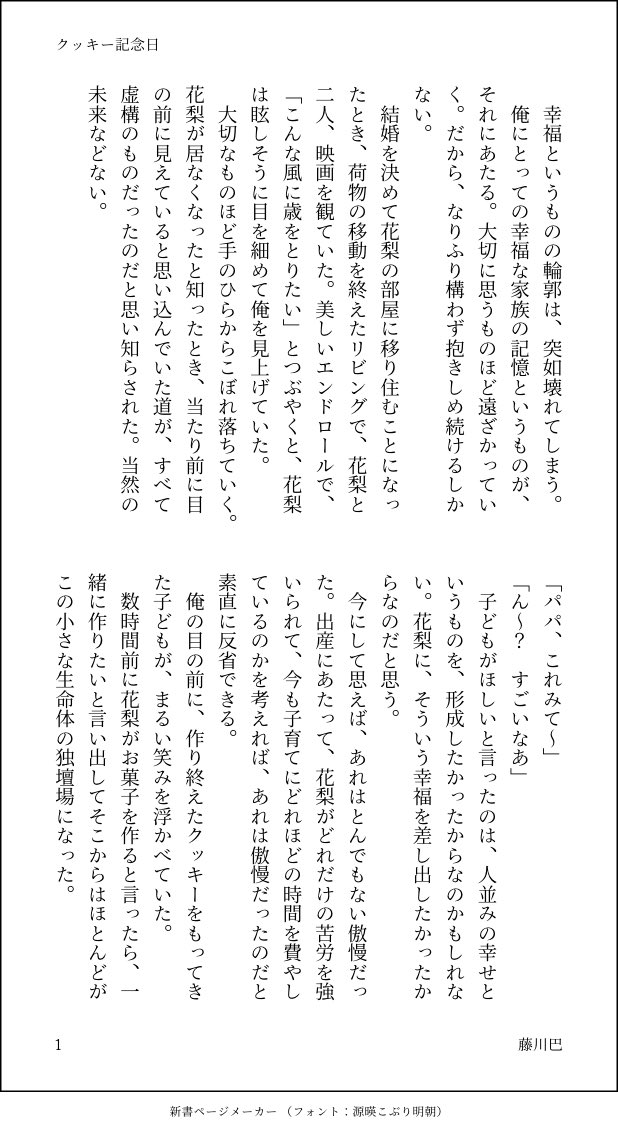 クッキー記念日
　幸福というものの輪郭は、突如壊れてしまう。
　俺にとっての幸福な家族の記憶というものが、
それにあたる。大切に思うものほど遠ざかってい
く。だから、なりふり構わず抱きしめ続けるしか
ない。
　結婚を決めて花梨の部屋に移り住むことになっ
たとき、荷物の移動を終えたリビングで、花梨と
二人、映画を観ていた。美しいエンドロールで、
「こんな風に歳をとりたい」とつぶやくと、花梨
は眩しそうに目を細めて俺を見上げていた。
　大切なものほど手のひらからこぼれ落ちていく。
花梨が居なくなったと知ったとき、当たり前に目
の前に見えていると思い込んでいた道が、すべて
虚構のものだったのだと思い知らされた。当然の
未来などない。
「パパ、これみて～」
「ん～？　すごいなあ」
　子どもがほしいと言ったのは、人並みの幸せと
いうものを、形成したかったからなのかもしれな
い。花梨に、そういう幸福を差し出したかったか
らなのだと思う。
　今にして思えば、あれはとんでもない傲慢だっ
た。出産にあたって、花梨がどれだけの苦労を強
いられて、今も子育てにどれほどの時間を費やし
ているのかを考えれば、あれは傲慢だったのだと
素直に反省できる。
　俺の目の前に、作り終えたクッキーをもってき
た子どもが、まるい笑みを浮かべていた。
　数時間前に花梨がお菓子を作ると言ったら、一
緒に作りたいと言い出してそこからはほとんどが
この小さな生命体の独壇場になった。
1
藤川巴
新書ページメーカー（フォント：源暎こぶり明朝）